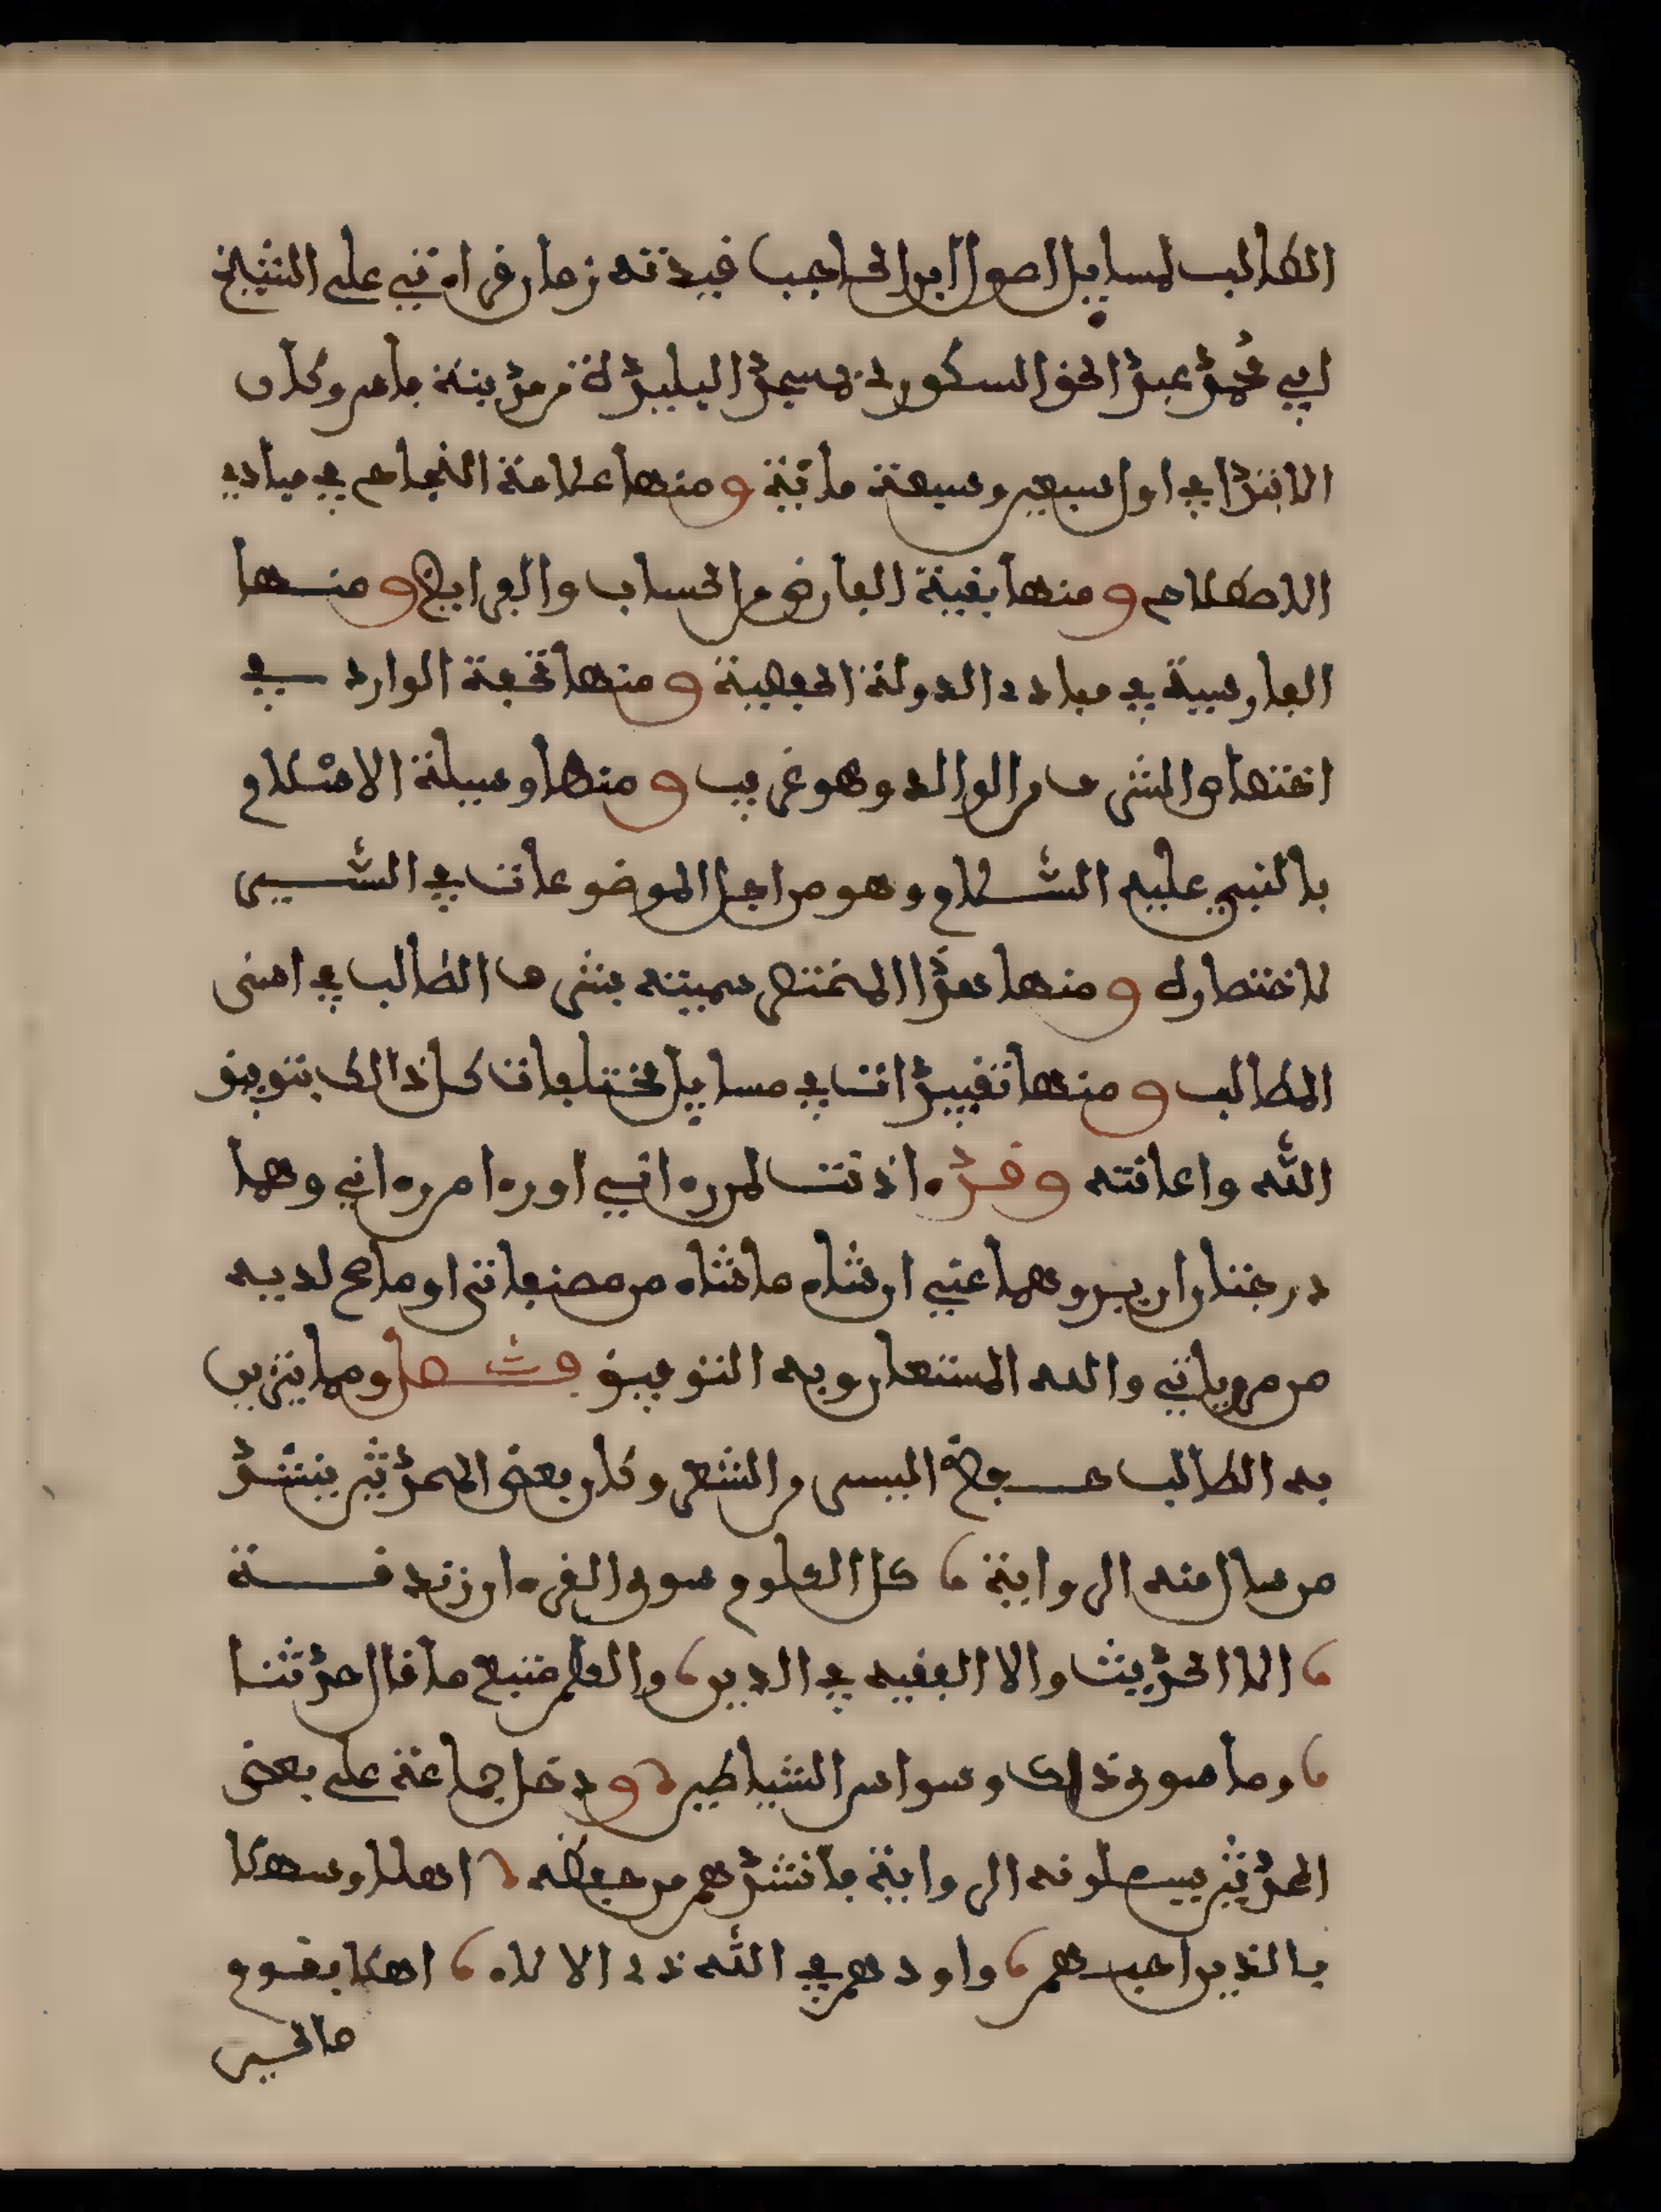 الطالب لمسايل اصول ابن الحاجب قيدته زمان قراءتي على الشيخ
ابي محمد عبد الحق السكوني بمسجد البليدة من مدينة فاس وكان
الابتدا في اول سبعين وسبعة مائة ومنها علامة النجاح في مبادي
الاصطلاح ومنها بغية الفارض من الحساب والفرايض ومنها
الفارسية في مبادي الدولة الحفصية ومنها تحفة الوارد في
اختصاص الشرف من الوالد وهو غريب ومنها وسيلة الاسلام
بالنبي عليه السلام وهو من اجل الموضوعات في السير
لاختصاره ومنها هذا المختصر سميته بشرف الطالب في اسنى
المطالب ومنها تقييدات في مسايل مختلفات كل ذالك بتوفيق
الله واعانته وقد اذنت لمن رءاني او رءا من رءاني وهما
در جتار ان يرو هما عني ان شاء ما شاء من مصنفاتي او ما صح لديه
من مروياتي والله المستعان وبه التوفيق فصل ومما يتزين
به الطالب حفظ اليسير من الشعر وكان بعض المحدثين ينشد
من سال منه الرواية كل العلوم سوى القرءان زندقة
الا الحديث والا الفقيه في الدين والعلم متبع ما قال حدثنا
وما سوى ذلك وسواس الشياطين ودخل جماعة على بعض
المحدثين يسئلونه الرواية فانشدهم من حفظه اهلا وسهلا
بالذين احبهم واودهم في الله ذي الالاء اهلا بقوم
صالحين